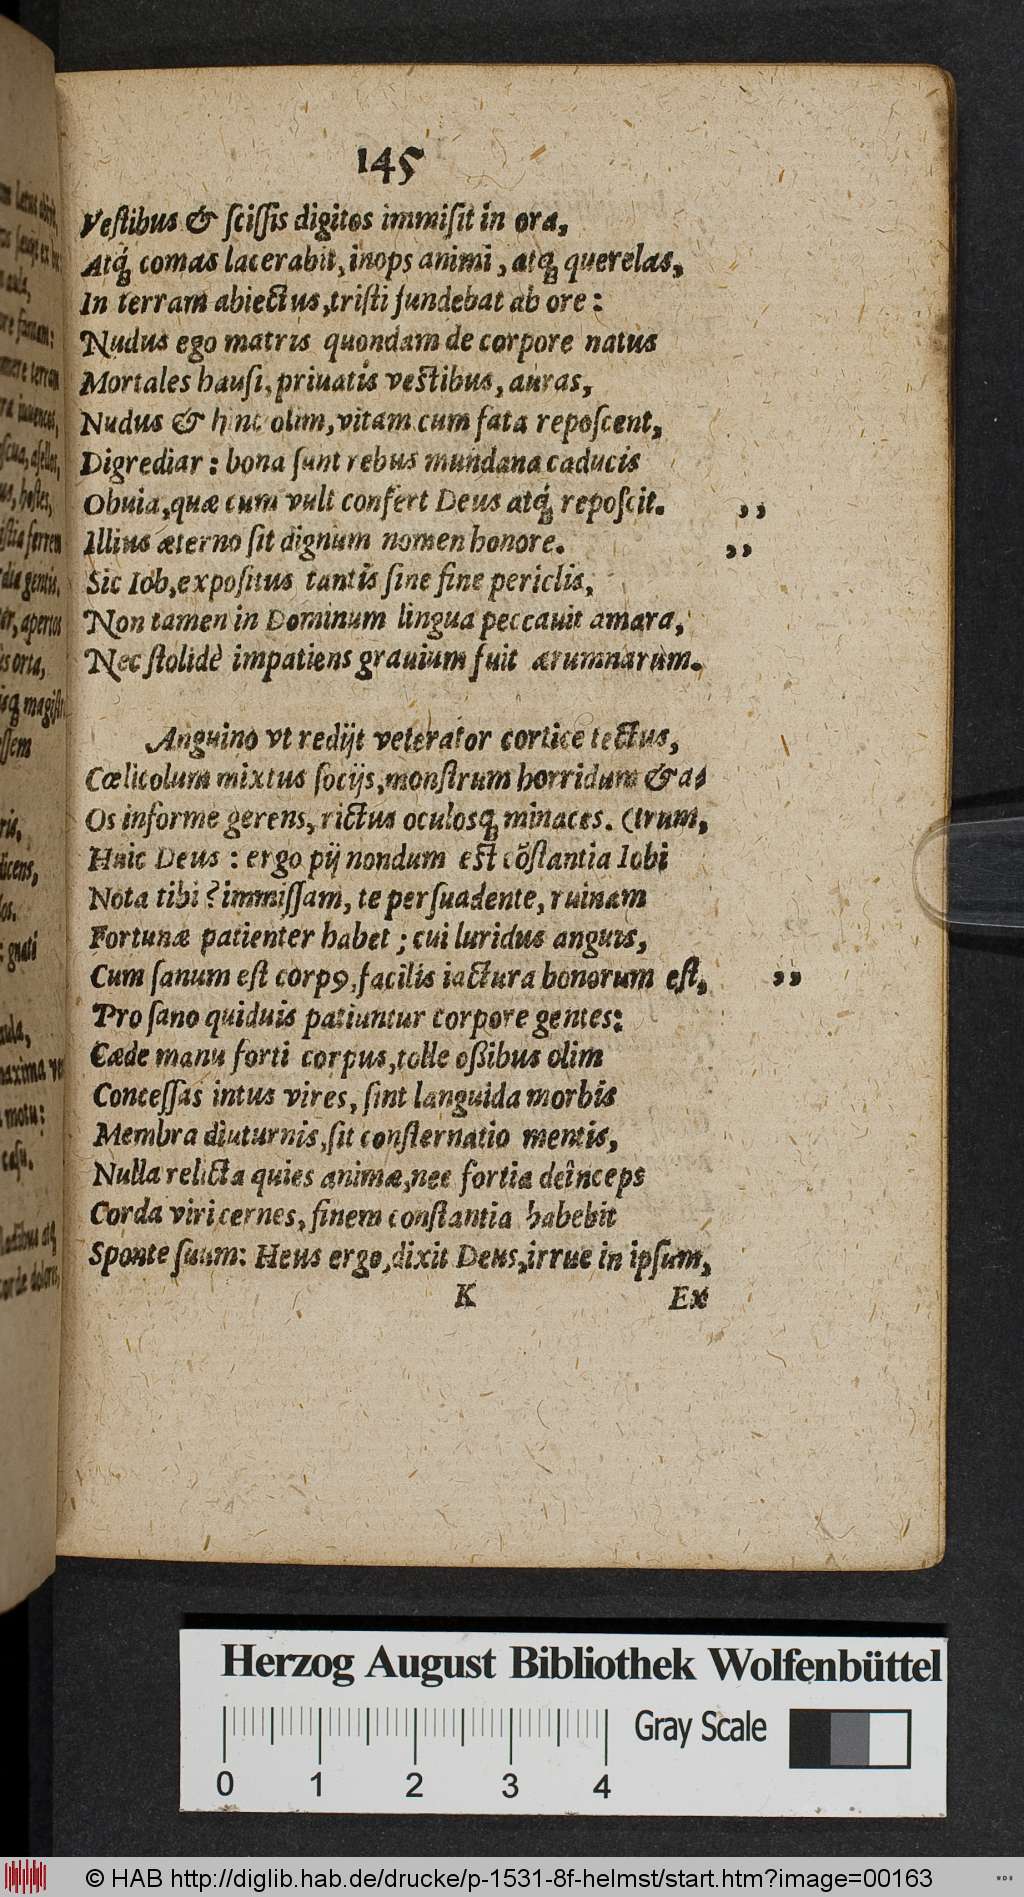 145
Vestibus & scissis digitos immisit in ora,
Atq́; comas lacerabit, inops animi, atq; querelas,
In terram abiectus, tristi fundebat ab ore:
Nudus ego matris quondam de corpore natus
Mortales hausi, priuatis vestibus, auras,
Nudus & hinc olim, vitam cum fata reposcent,
Digrediar: bona sunt rebus mundana caducis
Obuia, quæ cum vult confert Deus atq́; reposcit. ,,
Illius æterno sit dignum nomen honore. ,,
Sic Iob, expositus tantis sine fine periclis,
Non tamen in Dominum lingua peccauit amara,
Nec stolidè impatiens grauium fuit ærumnarum.
Anguino vt redijt veterator cortice tectus,
Cœlicolum mixtus socijs, monstrum horridum & a-
Os informe gerens, rictus oculosq; minaces. (trum,
Huic Deus: ergo pij nondum est cõstantia Iobi
Nota tibi? immissam, te persuadente, ruinam
Fortunæ patienter habet; cui luridus anguis,
Cum sanum est corpꝰ, facilis iactura bonorum est, ,,
Pro sano quiduis patiuntur corpore gentes:
Cæde manu forti corpus, tolle oßibus olim
Concessas intus vires, sint languida morbis
Membra diuturnis, sit consternatio mentis,
Nulla relicta quies animæ, nec fortia deînceps
Corda viri cernes, finem constantia habebit
Sponte suum: Heus ergo, dixit Deus, irrue in ipsum,
K Ex
Herzog August Bibliothek Wolfenbüttel
Gray Scale
0 1 2 3 4
© HAB http://diglib.hab.de/drucke/p-1531-8f-helmst/start.htm?image=00163